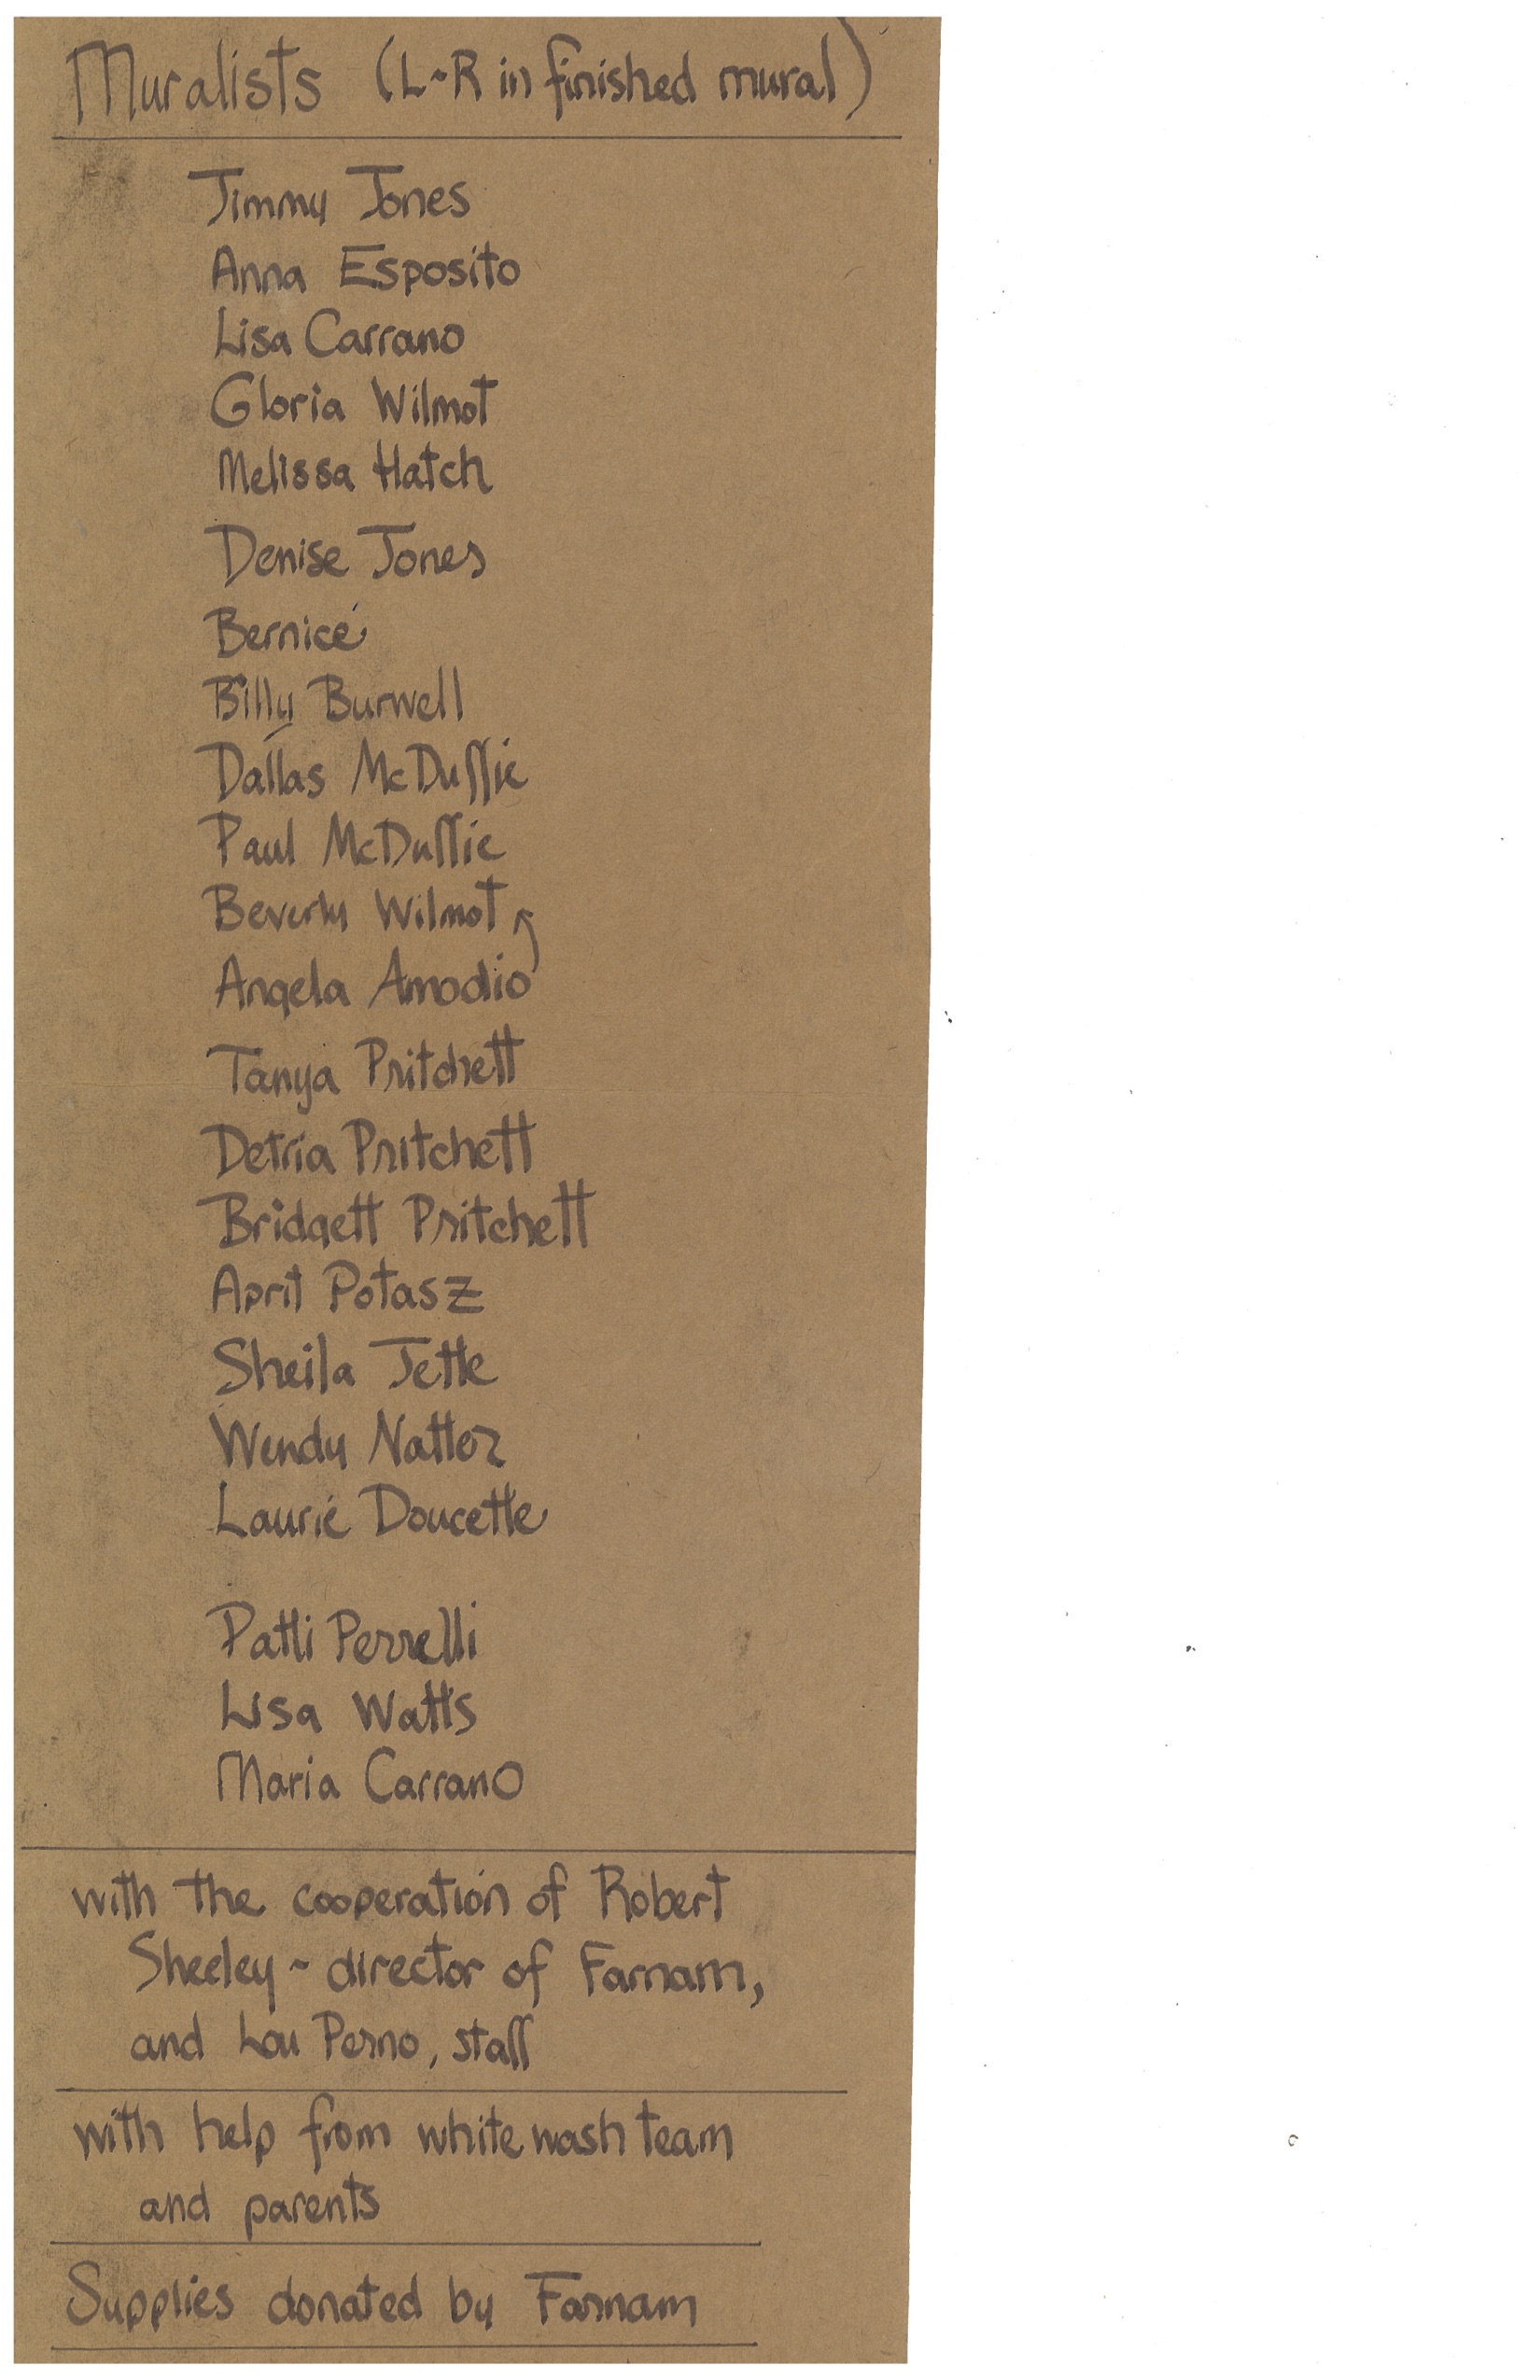 Muralists (L~R in finished mural)
Jimmy Jones
Anna Esposito
Lisa Carrano
Gloria Wilmot
Melissa Hatch
Denise Jones
Bernice
Billy Burwell
Dallas McDuffie
Paul McDuffie
Beverly Wilmot
Angela Amodio
Tanya Pritchett
Detria Pritchett
Bridgett Pritchett
April Potasz
Sheila Jette
Wendy Nattoz
Laurie Doucette
Patti Perrelli
Lisa Watts
Maria Carrano
with the cooperation of Robert
Sheeley ~ director of Farnam,
and Lou Perno, staff
with help from white wash team
and parents
Supplies donated by Farnam